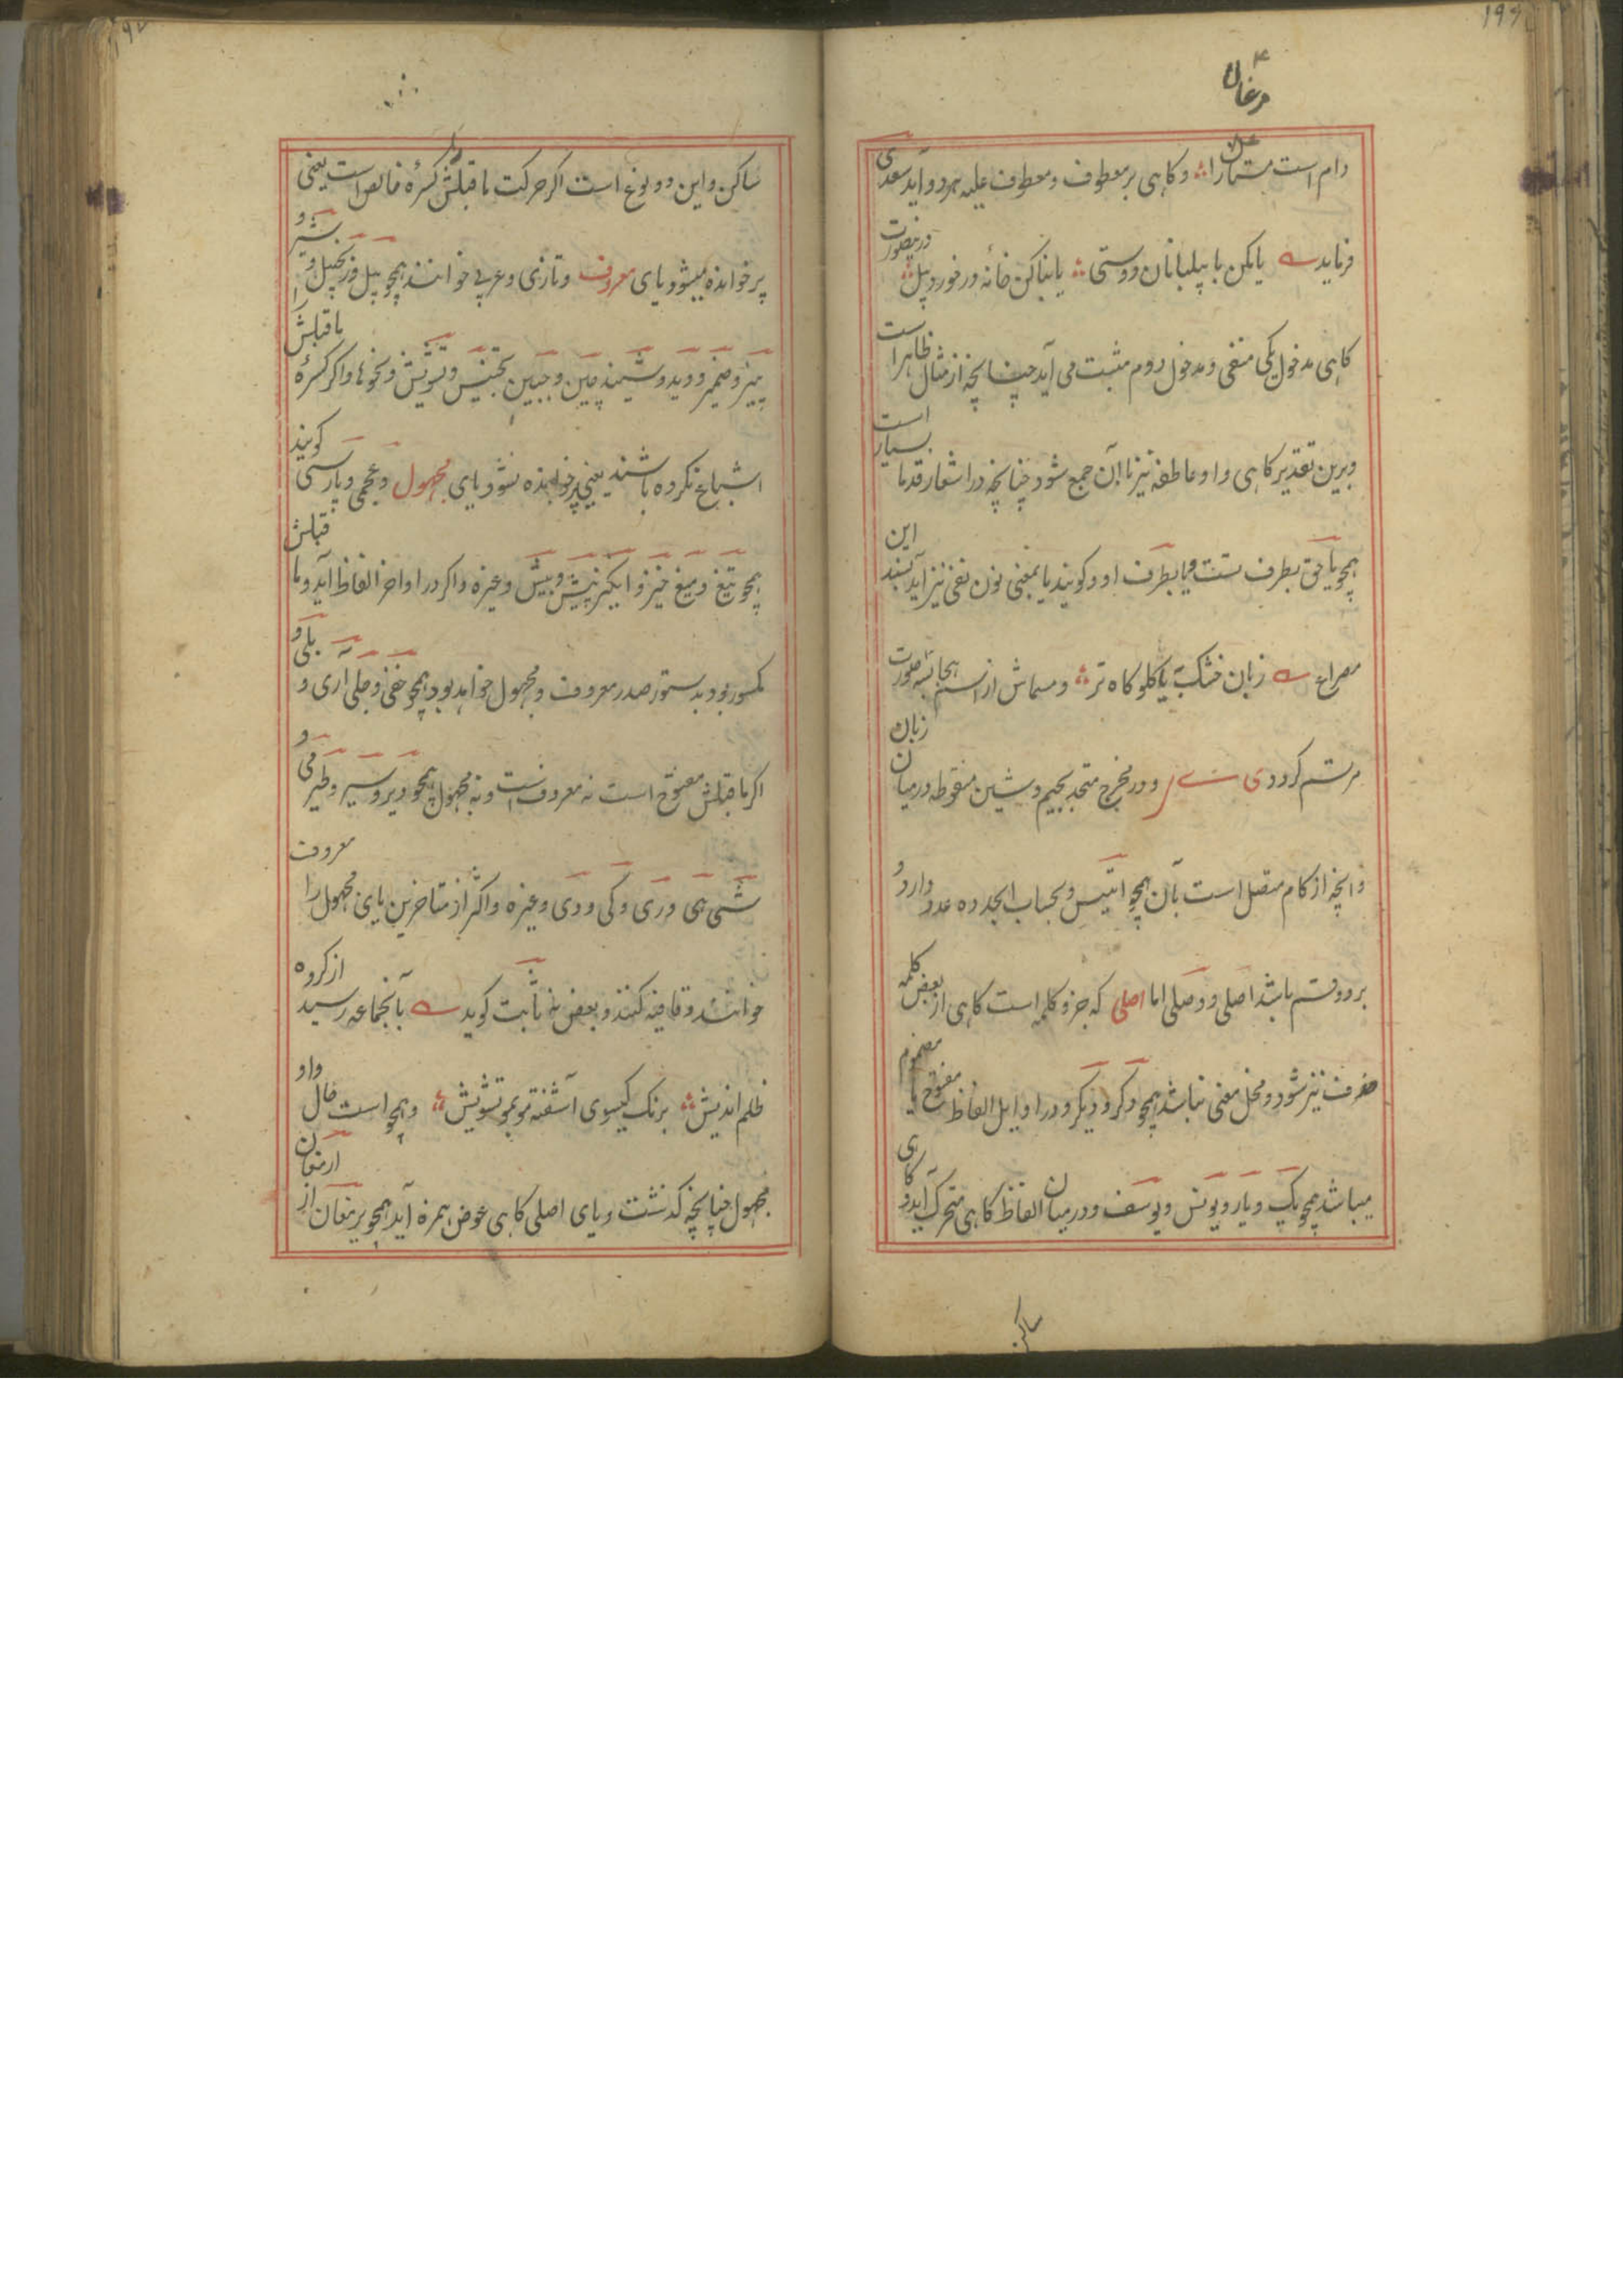 ۱۹۶
مرغان
دام است مستمار را و کاهی بر معطوف و معطوف علیه هر دو آید سعدی
فرماید یا مکن با پیلبانان دوستی یا بنا کن خانه در خورد پیل درینصورت
کاهی مدخول یکی منفی و مدخول دوم مثبت می آید چنانچه از مثال ظاهر است
و برین تقدیر کاهی واو عاطفه نیز با آن جمع شود چنانچه در اشعار قدما بسیار است
همچو یا حق بطرف تست و یا بطرف او و کویند یا بمعنی نون نفی نیز آید سند این
مصراع زبان خشک به یا کلو کاه تر و مسماش از اسم هجائیه بصورت
مرتسم کردد ی ے و در مخرج متحد بجیم و شین منقوطه در میان زبان
و آنچه از کام متصل است بآن همچو انیس و بحساب ابجد ده عدد دارد و
بر دو قسم باشد اصلی و وصلی اما اصلی که جزو کلمه است کاهی از بعض کلمه
حذف نیز شود و مخل معنی نباشد همچو دکر و دیکر و در اوایل الفاظ مفتوح یا مضموم
میباشد همچو یک و یار و یونس و یوسف و در میان الفاظ کاهی متحرک آید و کاهی
ساکن
۱۹۷
ساکن و این دو نوع است اکر حرکت ماقبلش کسره خالص است یعنی
پر خوانده میشود یای معروف و تازی و عربی خوانند همچو پیل و زنجبیل و شیر و
پنیر و ضمیر و دید و شنید و چین و جبین و تجنیس و تشویش و نحوها و اکر کسرهٔ ماقبلش را
اشباع نکرده باشند یعنی پر خوانده نشود یای مجهول و عجمی و پارسی کویند
همچو تیغ و میغ و خیز و انکیز و پیش و بیش و غیره و اکر در اواخر الفاظ آید و ماقبلش
مکسور بود بدستور صدر معروف و مجهول خواهد بود همچو خفی و جلی و آری و بلی و
اکر ماقبلش مفتوح است نه معروفست و نه مجهول همچو دیر و سیر و طیر و می و
شی و هی و ری و کی و دی و غیره و اکثر از متاخرین یای مجهول را معروف
خوانند و قافیه کنند و بعض نه ثابت کوید بآن جماعه رسید از کروه
ظلم اندیش برنک کیسوی آشفته مو بمو تشویش و همچو است حال واو
مجهول چنانچه کذشت و یای اصلی کاهی عوض همزه آید همچو یرمغان از ارمغان